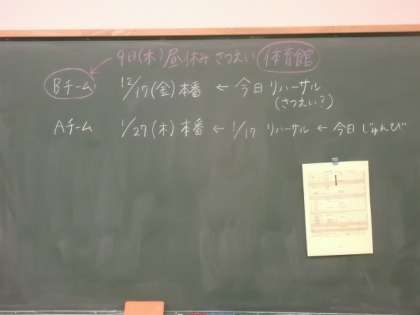 9日(木)昼休み さつえい 体育館
Bチーム 12/17(金)本番 ← 今日 リハーサル
(さつえい?)
Aチーム 1/27(木)本番 ← 1/17 リハーサル ← 今日 じゅんび
1